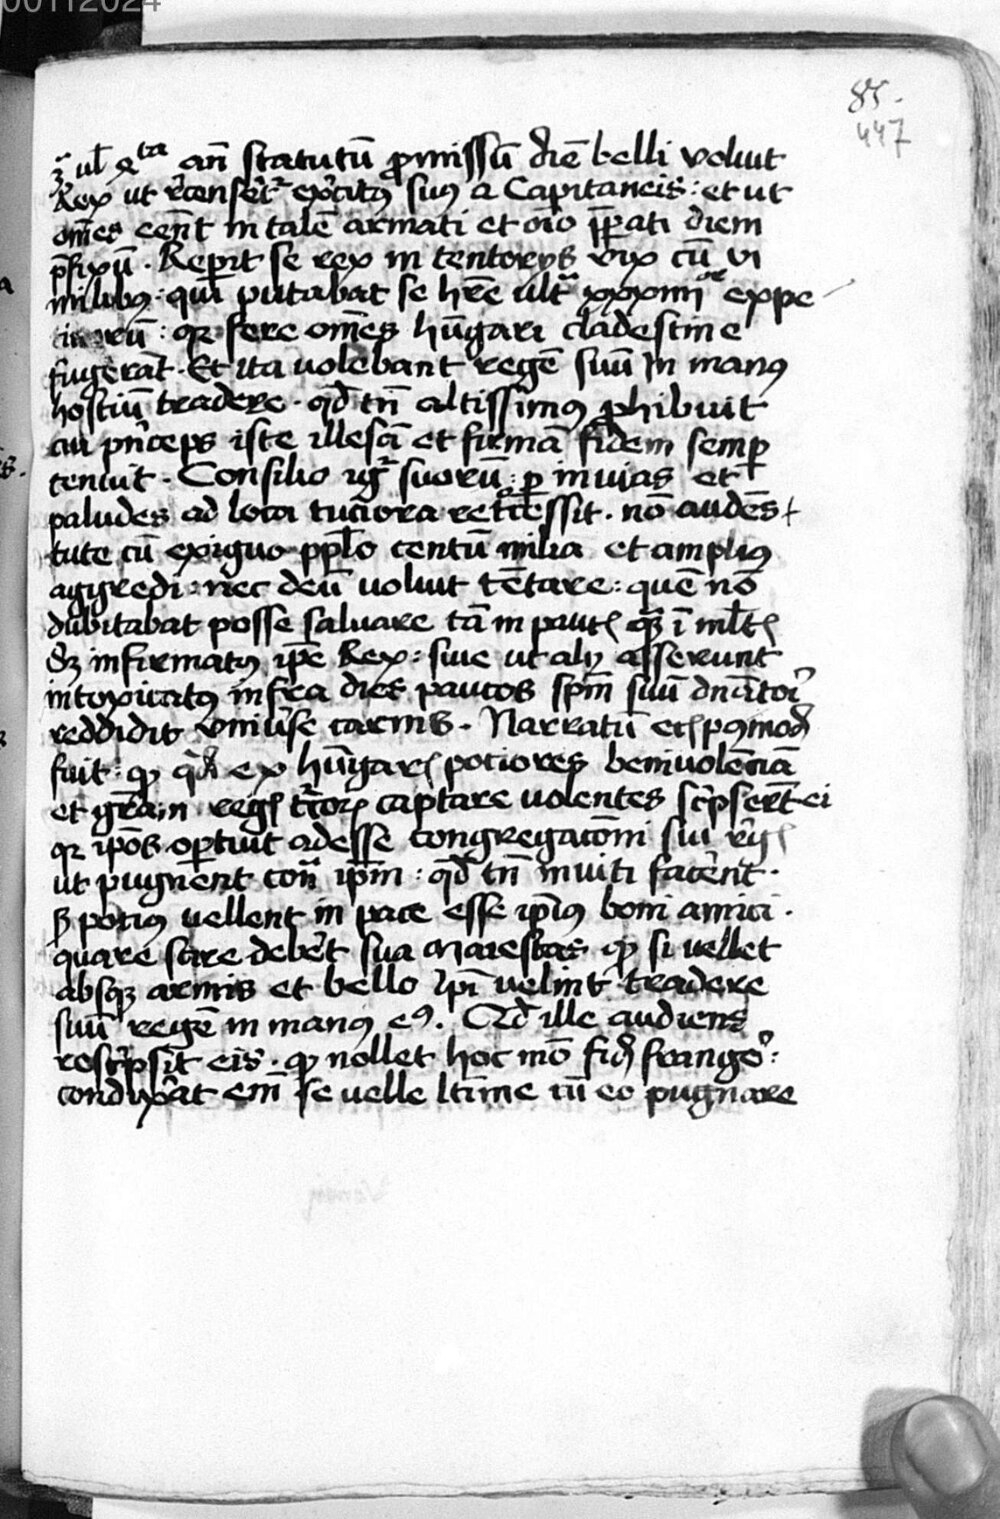 00112024
85.
447
3ᵃ ul̄ 4ta an̄ statutū ꝓmissū diē belli voluit
Rex ut rēcenseret᷑ ex̄citꝰ suꝰ a Capitaneis : et ut
om̄es eēnt in talē armati et oīo p̄parati diem
p̄fixū . Reperit se rex in tentorys vix cū vi
milibꝰ : qui putabat se hr̄e ult᷑ᵃ xxxiiii or expe
: qr fere om̄es hūgari cladestine
fugerāt . Et ita volebant regē suū in manꝰ
hostiū tradere . qd̄ tn̄ altissimꝰ ꝓhibuit
cui pn̄ceps iste illesā et firmā fidem semꝑ
tenuit . Consilio igr̄ suorū : ꝑ invias et
paludes ad loca tuciora recessit . nō audēs
tute cū exiguo ppl̄o centū milia et ampliꝰ
aggredi : nec deū voluit tētare : quē nō
dubitabat posse salvare tā in paucꝭ qꝫ ī ml̄tꝭ
Sꝫ infirmatꝰ ip̄e Rex : sive ut aly asserunt
intoxicatꝰ infra dies paucos spm̄ suū dn̄atori
reddidit vniv̄se carnis . Narratū etꝭ pꝰmod̄
fuit : ꝙ qd̄ ex hūgarꝭ potiores benivolēciā
et gr̄am regꝭ tc̄orꝭ captare volentes sc̄pserūt ei
qr ip̄os oportuit adesse congregacōni sui rēgꝭ
ut pugnēnt con᷑ᵃ ip̄m : qd̄ tn̄ inviti facēnt .
ꝫ potiꝰ vellent in pace esse ip̄iꝰ boni amici .
quare scire debēt sua Maiestas ꝙ si vellet
absqꝫ armis et bello ip̄i velint tradere
suū regē in manꝰ eꝰ . Qd̄ ille audiens
resc̄psit eis . ꝙ nollet hoc mō fidē frangēr :
conduxāt em̄ se velle lt̄ime cū eo pugnare